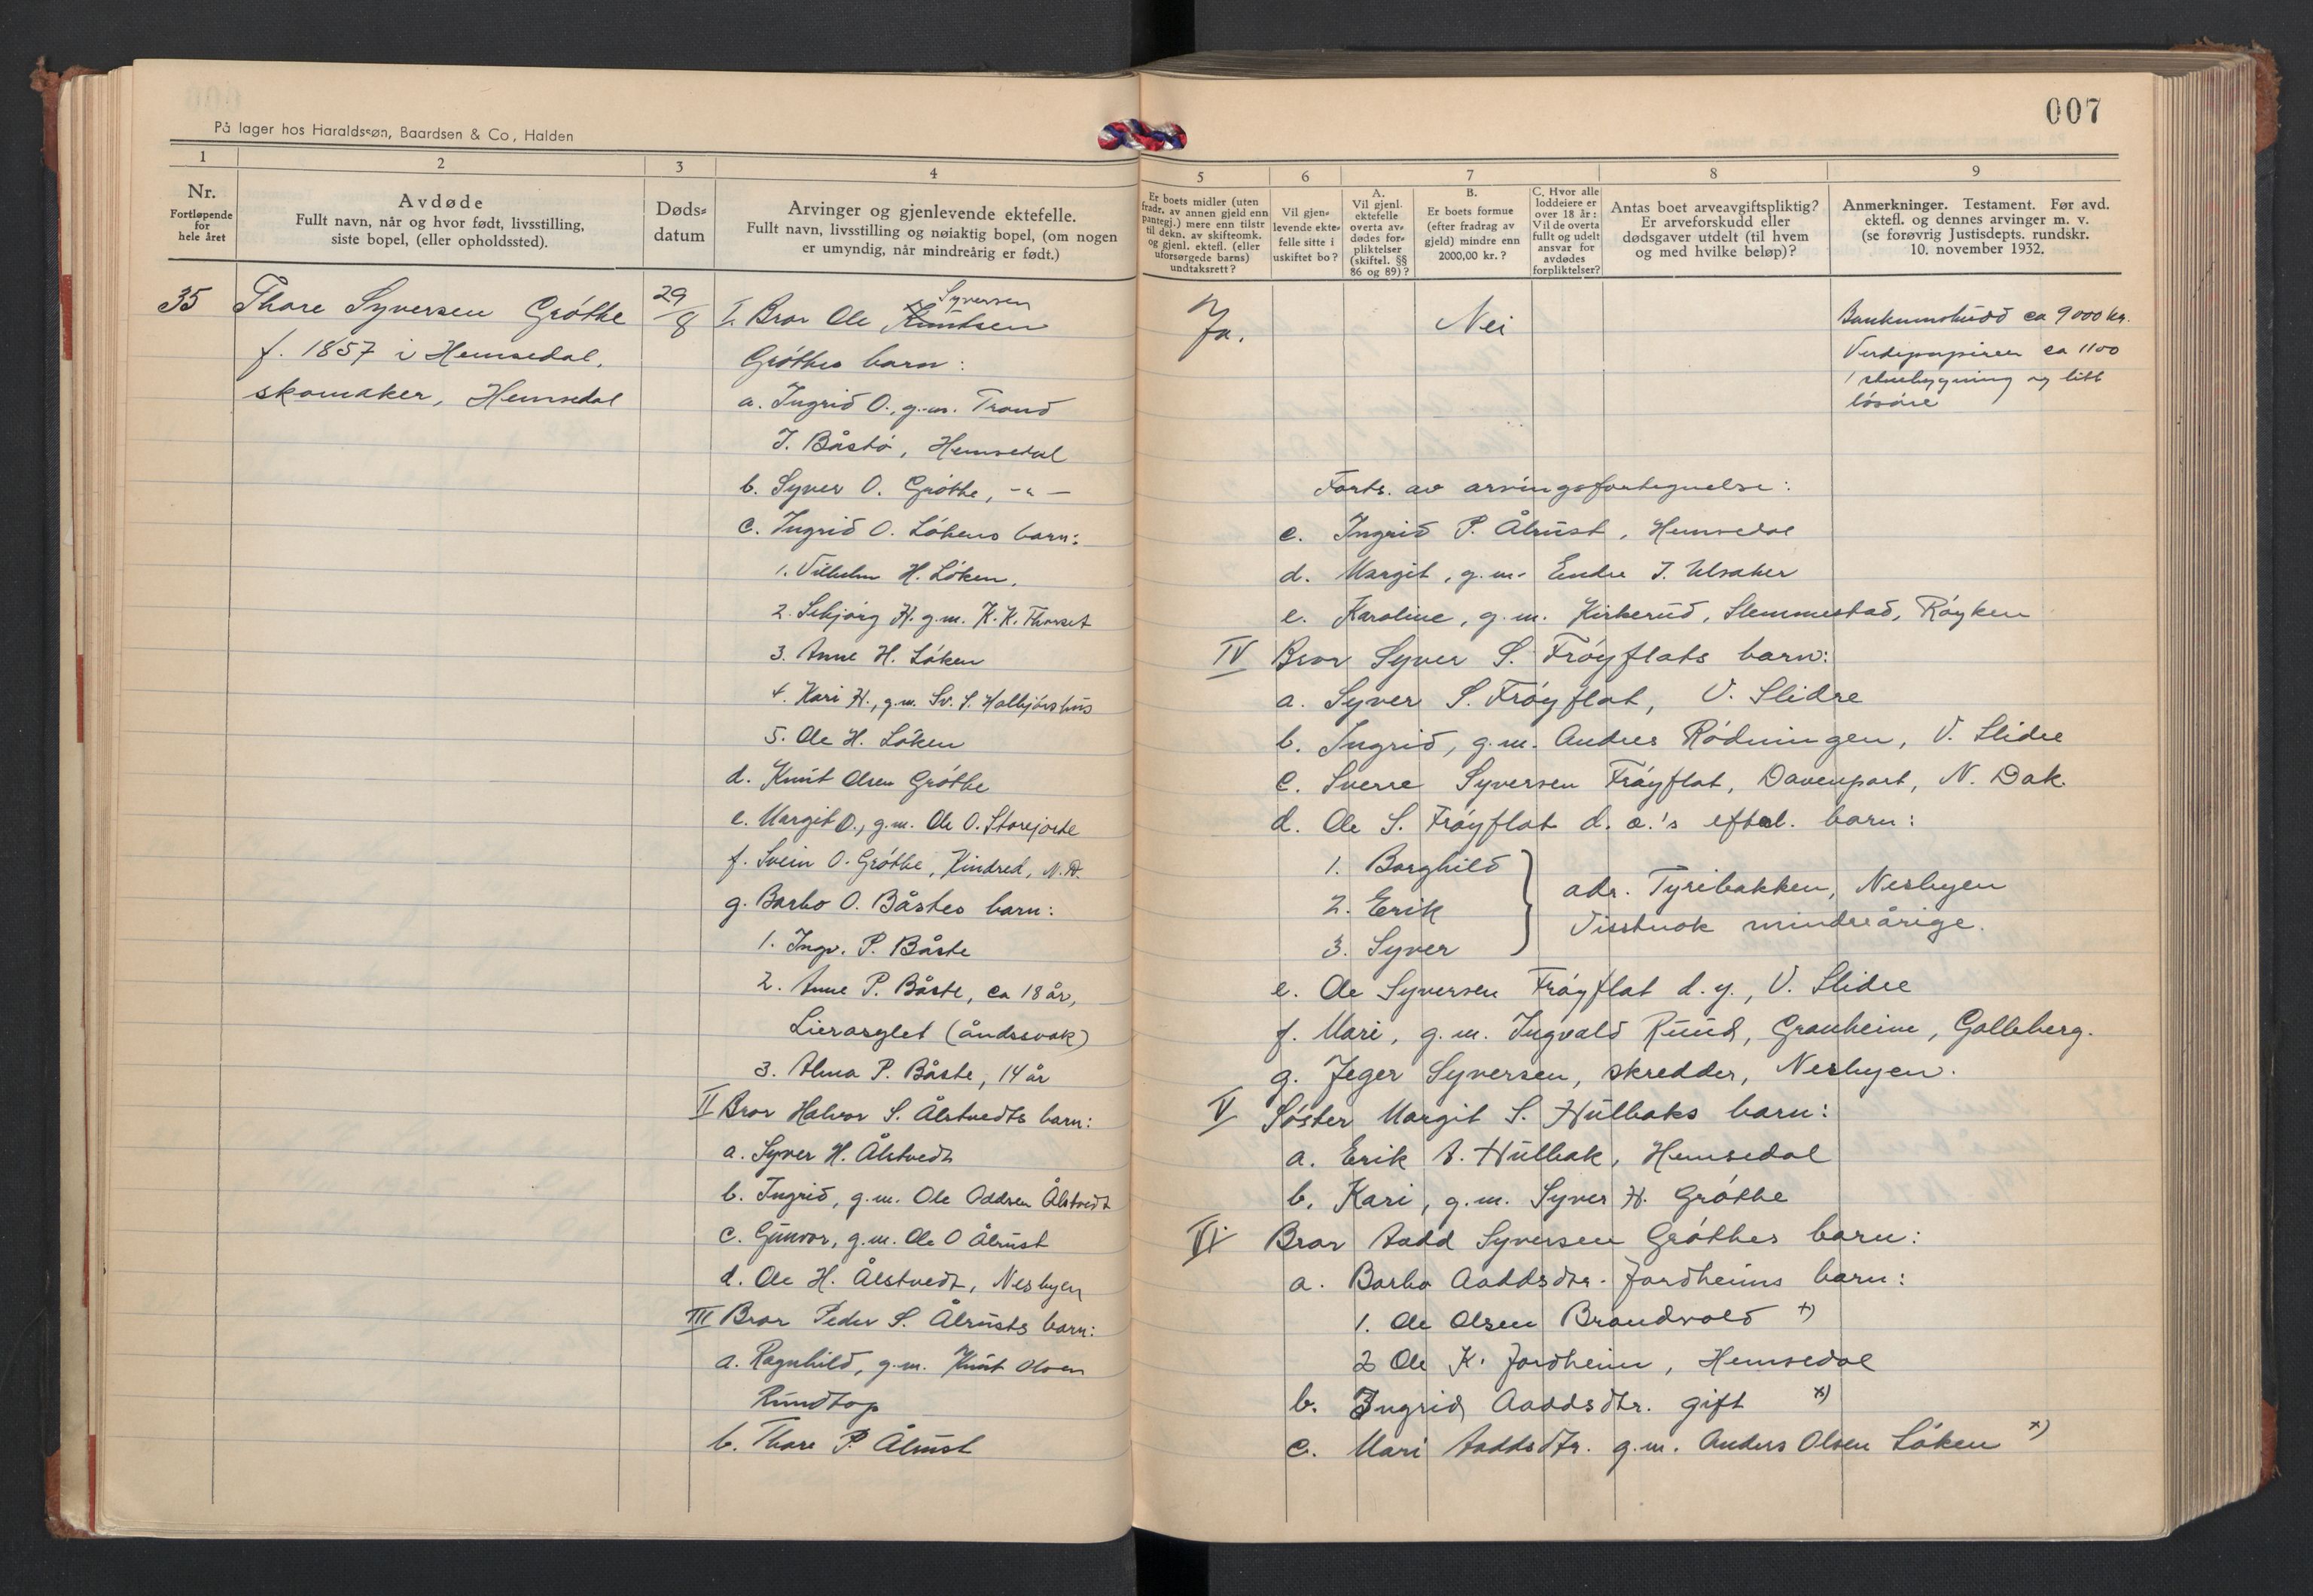 007
På lager hos Haraldssøn, Baardsen & Co, Halden
1
2
3
4
5
6
7
8
9
Nr.
Fortløpende
for
hele året
Avdøde
Fullt navn, når og hvor født, livsstilling,
siste bopel, (eller opholdssted).
Døds-
datum
Arvinger og gjenlevende ektefelle.
Fullt navn, livsstilling og nøiaktig bopel, (om nogen
er umyndig, når mindreårig er født.)
Er boets midler (uten
fradr. av annen gjeld enn
pantegj.) mere enn tilstr
til dekn. av skifteomk.
og gjenl. ektefl. (eller
uforsørgede barns)
undtaksrett?
Vil gjen-
levende ekte-
felle sitte i
uskiftet bo?
A.
Vil gjenl.
ektefelle
overta av-
dødes for-
pliktelser
(skiftel. §§
86 og 89)?
B.
Er boets formue
(efter fradrag av
gjeld) mindre enn
2000,00 kr.?
C. Hvor alle
loddeiere er
over 18 år:
Vil de overta
fullt og udelt
ansvar for
avdødes
forpliktelser?
Antas boet arveavgiftspliktig?
Er arveforskudd eller
dødsgaver utdelt (til hvem
og med hvilke beløp)?
Anmerkninger. Testament. Før avd.
ektefl. og dennes arvinger m. v.
(se forøvrig Justisdepts. rundskr.
10. november 1932.
35
Thore Syversen Grøthe
f. 1857 i Hemsedal,
skomaker, Hemsedal
29/8
I. Bror Ole Knutsen Syversen
Grøthes barn:
a. Ingrid O., g.m. Trond
T. Båstø, Hemsedal
b. Syver O. Grøthe, -"-
c. Ingrid O. Løkens barn:
1. Vilhelm H. Løken,
2. Sebjørg H. g.m. K. K. Thorset
3. Anne H. Løken
4. Kari H., g.m. Sv. S. Halbjørhus
5. Ole H. Løken
d. Knut Olsen Grøthe
e. Margit O., g.m. Ole O. Storejorde
f. Svein O. Grøthe, Kindred, N.D.
g. Barbo O. Båstes barn:
1. Ingv. P. Båste
2. Anne P. Båste, ca 18 år,
Lierasylet (åndssvak)
3. Alma P. Båste, 14 år
II Bror Halvor S. Ålstvedts barn:
a. Syver H. Ålstvedt
b. Ingrid, g.m. Ole Oddsen Ålstvedt
c. Gunvor, g.m. Ole O Ålrust
d. Ole H. Ålstvedt, Nesbyen
III Bror Peder S. Ålrusts barn:
a. Ragnhild, g.m. Knut Olsen
Rundtop
b. Thore P. Ålrust
Ja.
Nei
Bankinnskudd ca 9000 kr.
Verdipapirer ca 1100
1 stuebygning og litt
løsøre
Forts. av arvingsfortegnelse:
c. Ingrid P. Ålrust, Hemsedal
d. Margit, g.m. Endre T. Ulsaker
e. Karoline, g.m. Kirkerud, Slemmestad, Røyken
IV Bror Syver S. Frøyflats barn:
a. Syver S. Frøyflat, V. Slidre
b. Ingrid, g.m. Andres Rødningen, V. Slidre
c. Sverre Syversen Frøyflat, Davenport, N. Dak.
d. Ole S. Frøyflat d. e.'s eftal. barn:
1. Borghild
2. Erik
3. Syver
adr. Tyribakken, Nesbyen
Visstnok mindreårige.
e. Ole Syversen Frøyflat d. y., V. Slidre
f. Mari, g.m. Ingvald Ruud, Granheim, Galleberg.
g. Jeger Syversen, skredder, Nesbyen.
V Søster Margit S. Hulbaks barn:
a. Erik A. Hulbak, Hemsedal
b. Kari, g.m. Syver H. Grøthe
VI Bror Aadd Syversen Grøthes barn:
a. Barbo Aaddsdtr. Jordheims barn:
1. Ole Olsen Brandvold x)
2 Ole K. Jordheim, Hemsedal
b. Ingrid Aaddsdtr. gift x)
c. Mari Aaddsdtr. g.m. Anders Olsen Løken x)